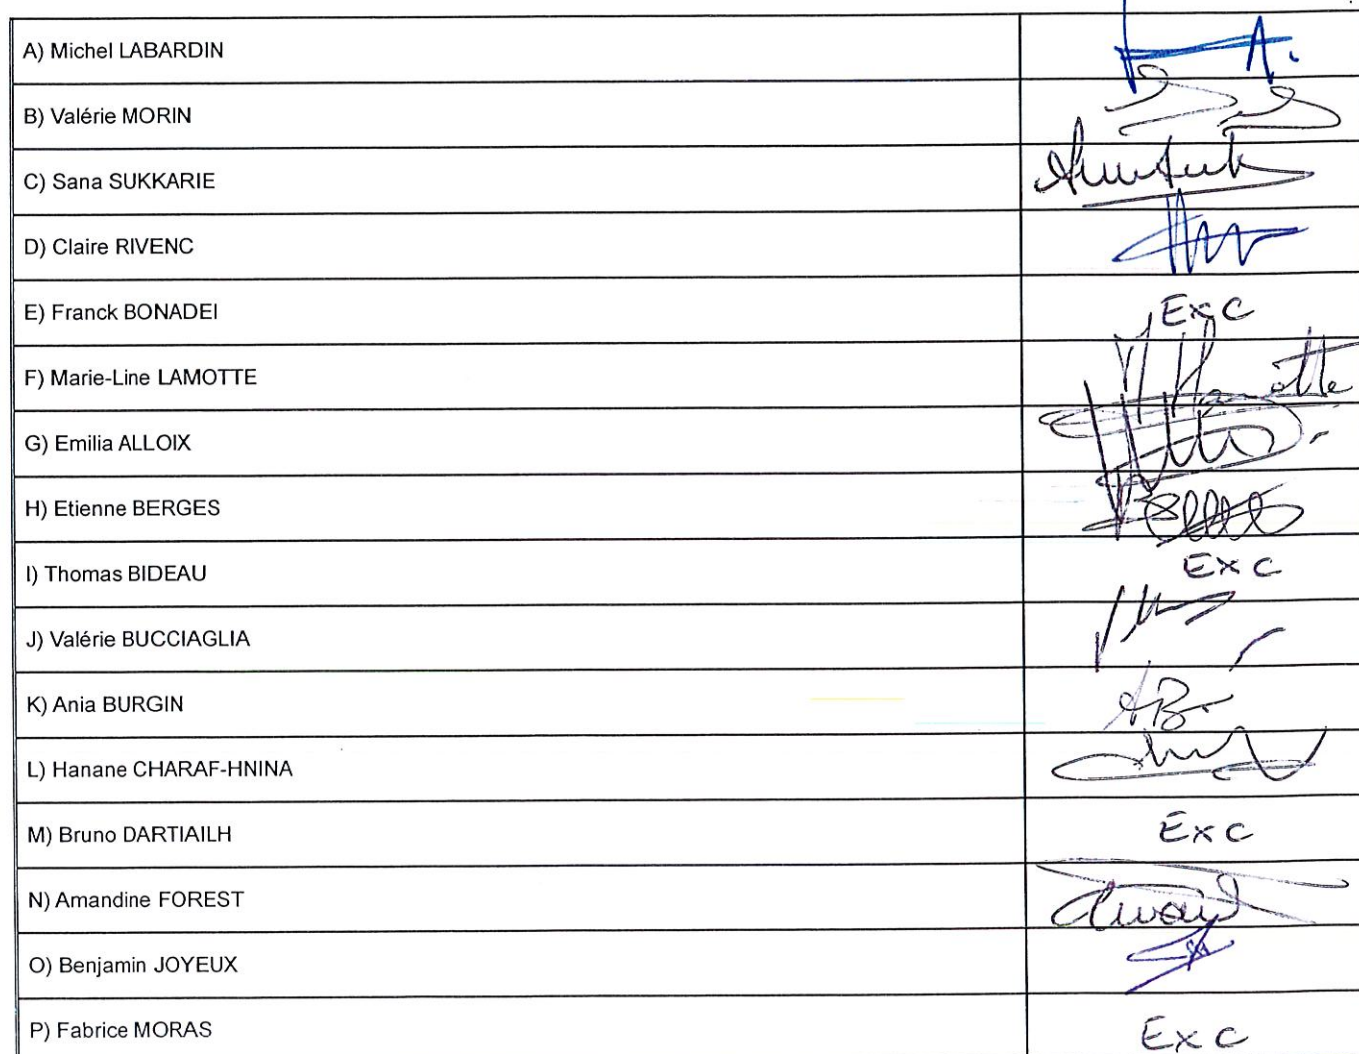 A) Michel LABARDIN
B) Valérie MORIN
C) Sana SUKKARIE
D) Claire RIVENC
E) Franck BONADEI
Exc
F) Marie-Line LAMOTTE
G) Emilia ALLOIX
H) Etienne BERGES
I) Thomas BIDEAU
Exc
J) Valérie BUCCIAGLIA
K) Ania BURGIN
L) Hanane CHARAF-HNINA
M) Bruno DARTIAILH
Exc
N) Amandine FOREST
O) Benjamin JOYEUX
P) Fabrice MORAS
Exc